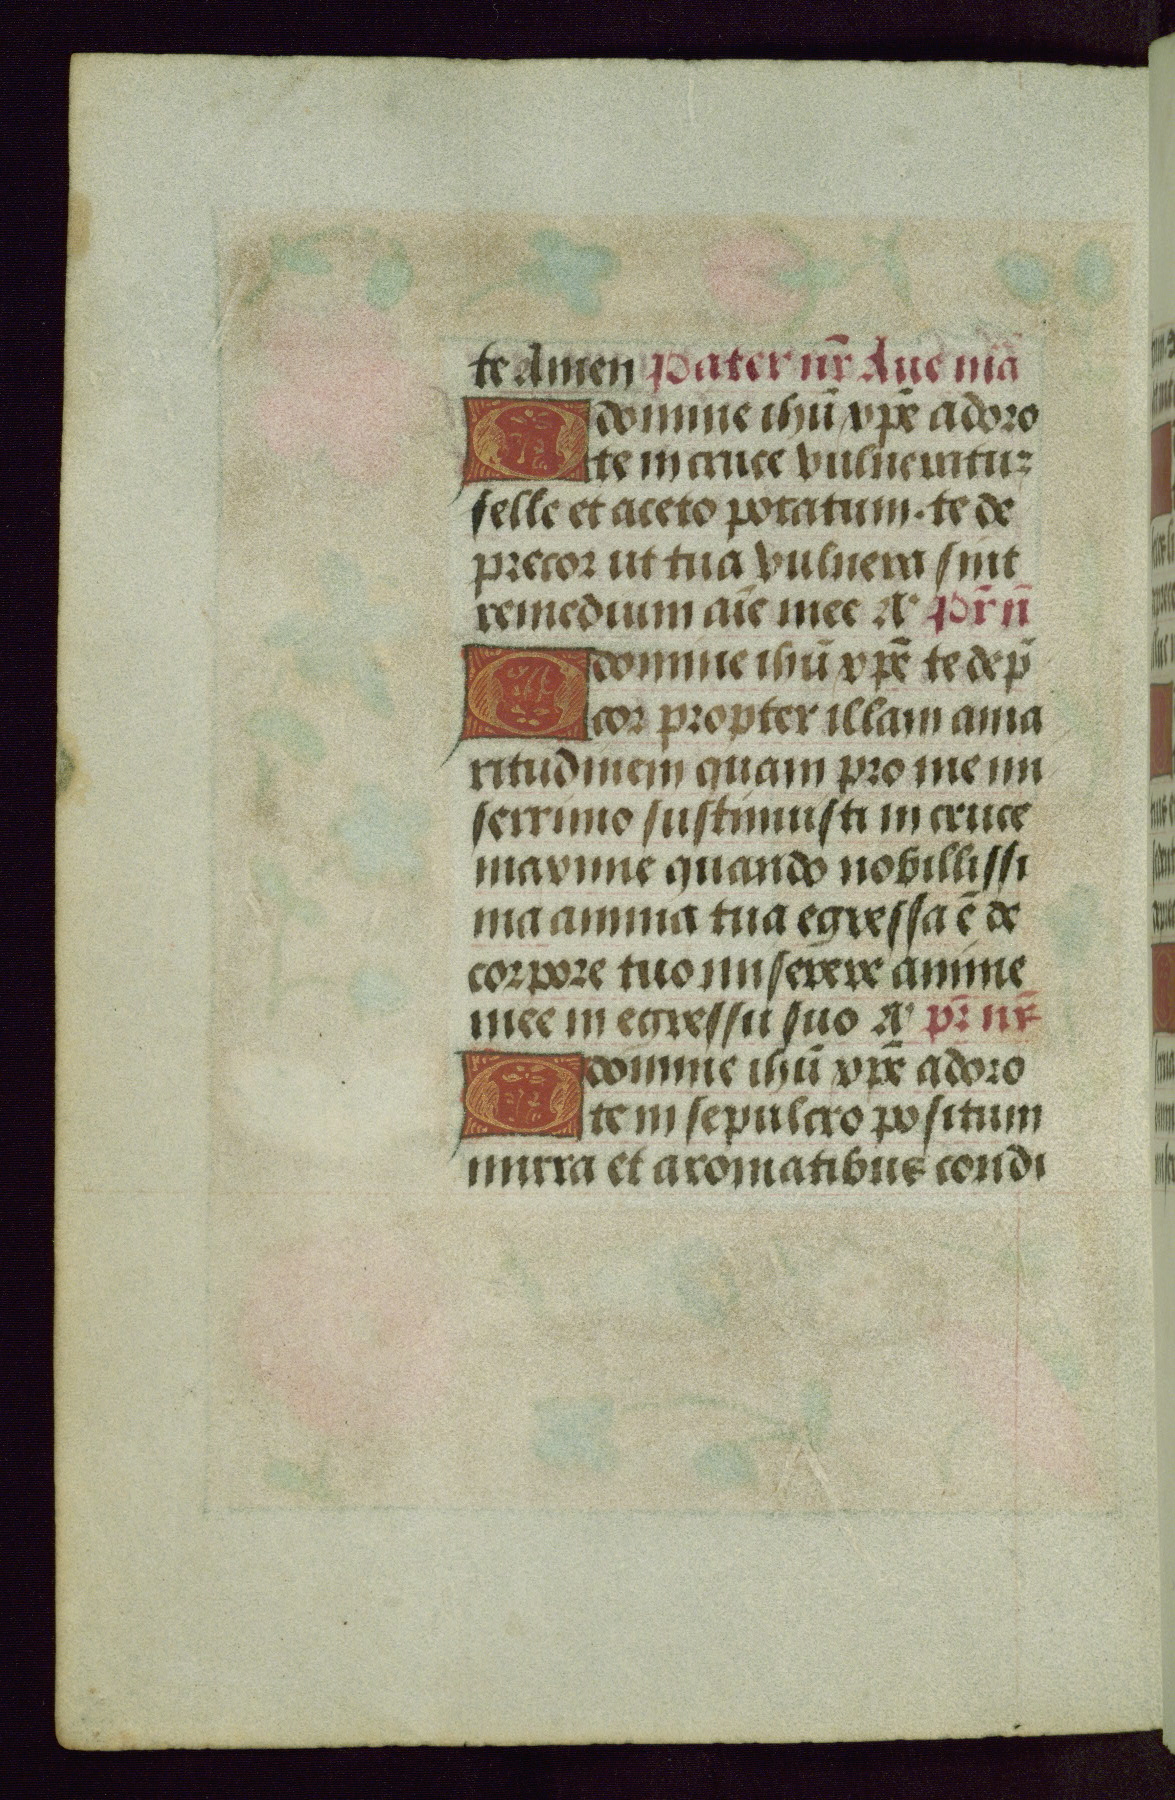 te Amen Pater nr̄ Aue mā
O domine ihū xp̄e adoro
te in cruce vulneratuz
felle et aceto potatum. te de
precor ut tua vulnera sint
remedium aīe mee A' Pr̄ n̄
O domine ihū xp̄e te dep̄
cor propter illam ama
ritudinem quam pro me mi
serrimo sustinuisti in cruce
maxime quando nobillissi
ma anima tua egressa ē de
corpore tuo miserere anime
mee in egressu suo A' pr̄ nr̄
O domine ihū xp̄e adoro
te in sepulcro positum
mirra et aromatibus condi